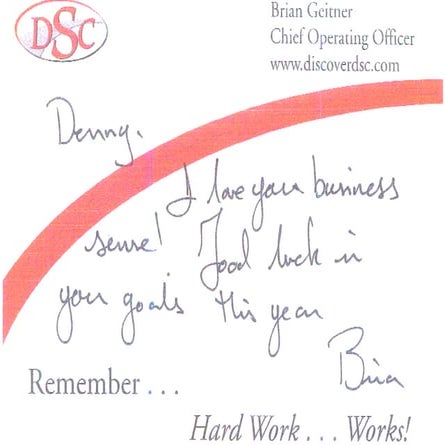 DSC
Brian Geitner
Chief Operating Officer
www.discoverdsc.com
Denny,
I love your business
sense! Good luck in
your goals this year
Brian
Remember . . .
Hard Work . . . Works!